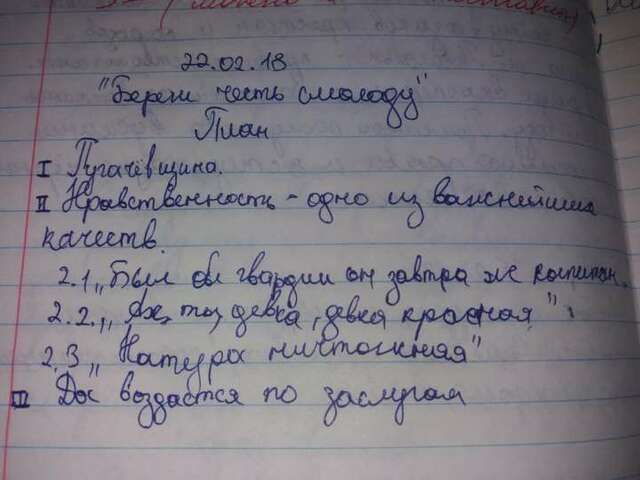 22.02.18
"Береги честь смолоду"
План
I Пугачёвщина.
II Нравственность - одно из важнейших
качеств.
2.1 „Был бы гвардии он завтра же капитан.
2.2. „Ах, ты, девка, девка красная".
2.3 „Натура ничтожная"
III Да воздастся по заслугам